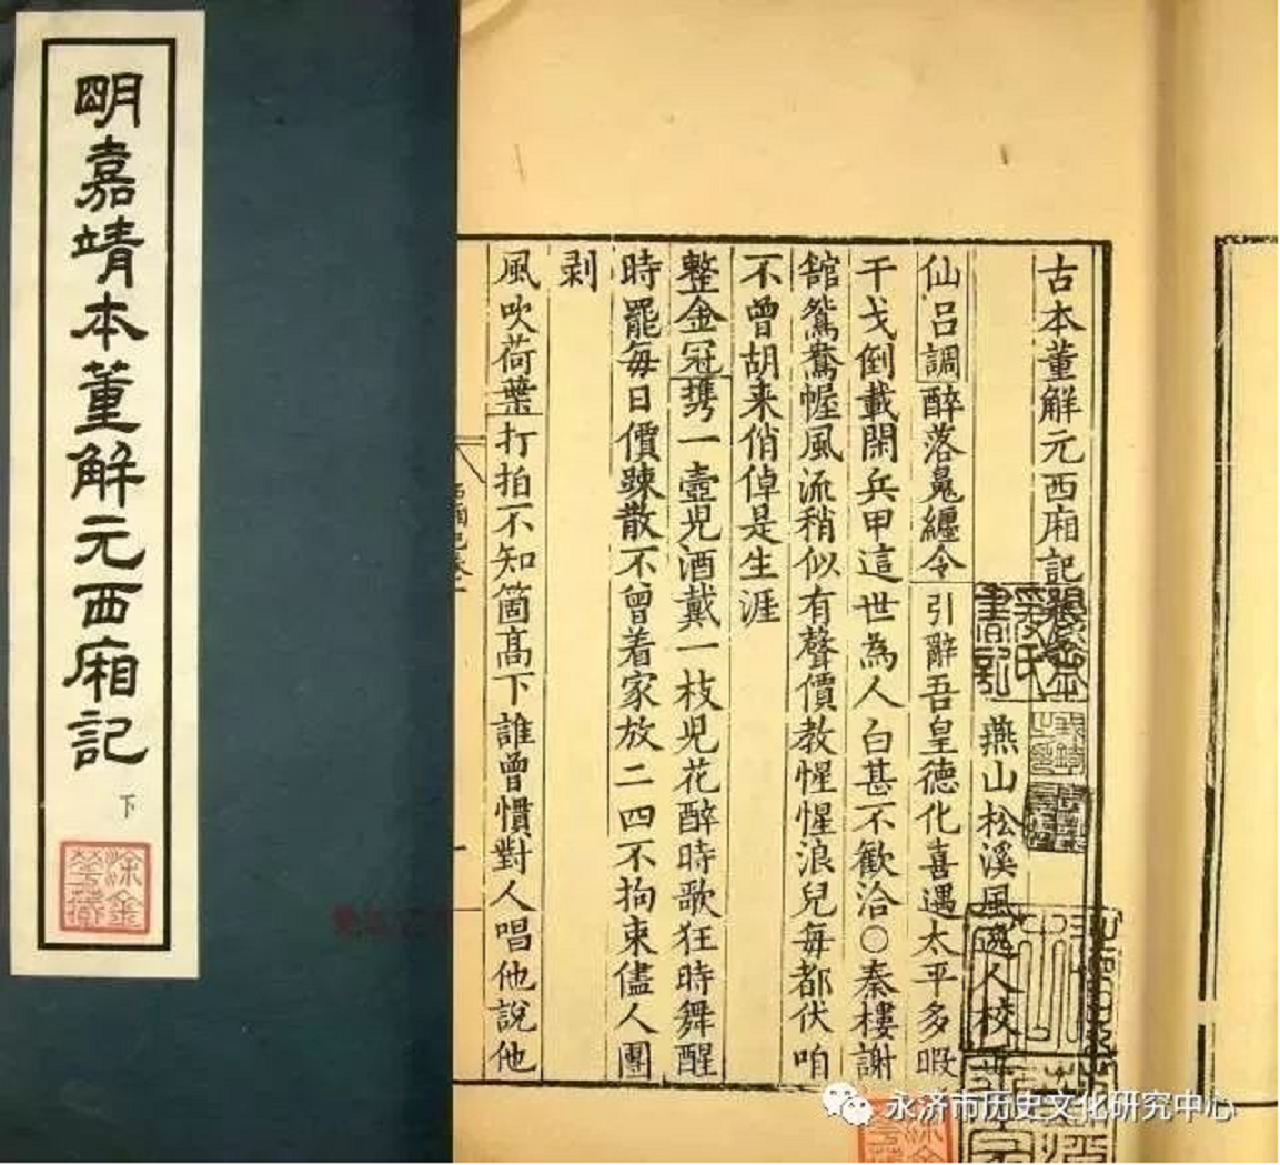 明嘉靖本董解元西廂記
下
涂金
古本董解元西廂記卷
燕山松溪風逸人校
仙呂調醉落魄纏令引辭吾皇德化喜遇太平多暇
干戈倒載閑兵甲這世為人白甚不歡洽〇秦樓謝
館鴛鴦幄風流稍似有聲價教惺惺浪兒每都伏咱
不曾胡来俏倬是生涯
整金冠携一壺兒酒戴一枝兒花醉時歌狂時舞醒
時罷每日價踈散不曾着家放二四不拘束儘人團
剥
風吹荷葉打拍不知箇高下誰曾慣對人唱他說他
永济市历史文化研究中心